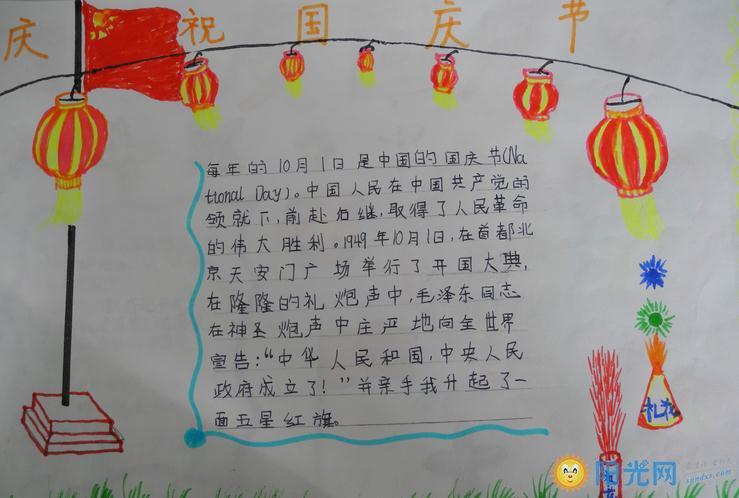 庆祝国庆节
每年的10月1日是中国的国庆节(Na
tional Day)。中国人民在中国共产党的
领就下，前赴后继，取得了人民革命
的伟大胜利。1949年10月1日，在首都北
京天安门广场举行了开国大典，
在隆隆的礼炮声中，毛泽东同志
在神圣炮声中庄严地向全世界
宣告：“中华人民和国，中央人民
政府成立了！”并亲手我升起了一
面五星红旗。
礼花
阳光网